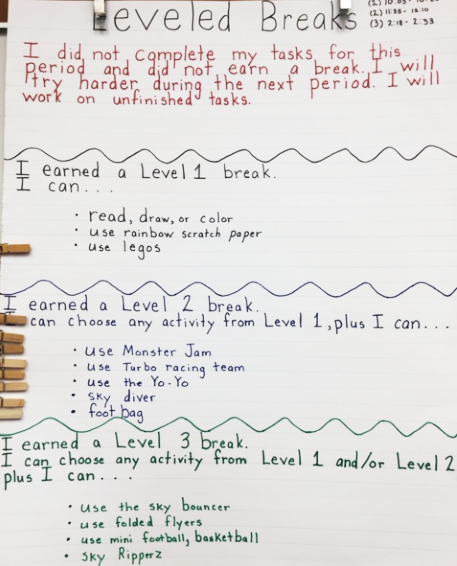 Leveled Breaks
(2) 11:55 - 12:10
(3) 2:18 - 2:33
I did not complete my tasks for this
period and did not earn a break. I will
try harder during the next period. I will
work on unfinished tasks.
I earned a Level 1 break.
I can...
• read, draw, or color
• use rainbow scratch paper
• use legos
I earned a Level 2 break.
can choose any activity from Level 1, plus I can...
• use Monster Jam
• use Turbo racing team
• use the Yo-Yo
• sky diver
• foot bag
I earned a Level 3 break.
I can choose any activity from Level 1 and/or Level 2
plus I can...
• use the sky bouncer
• use folded flyers
• use mini football, basketball
• sky Ripperz